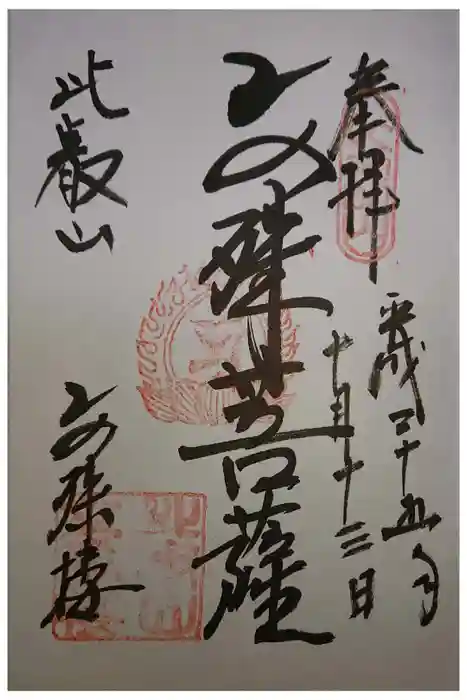 奉拝
平成二十五年
十月十三日
文殊菩薩
比叡山
文殊楼